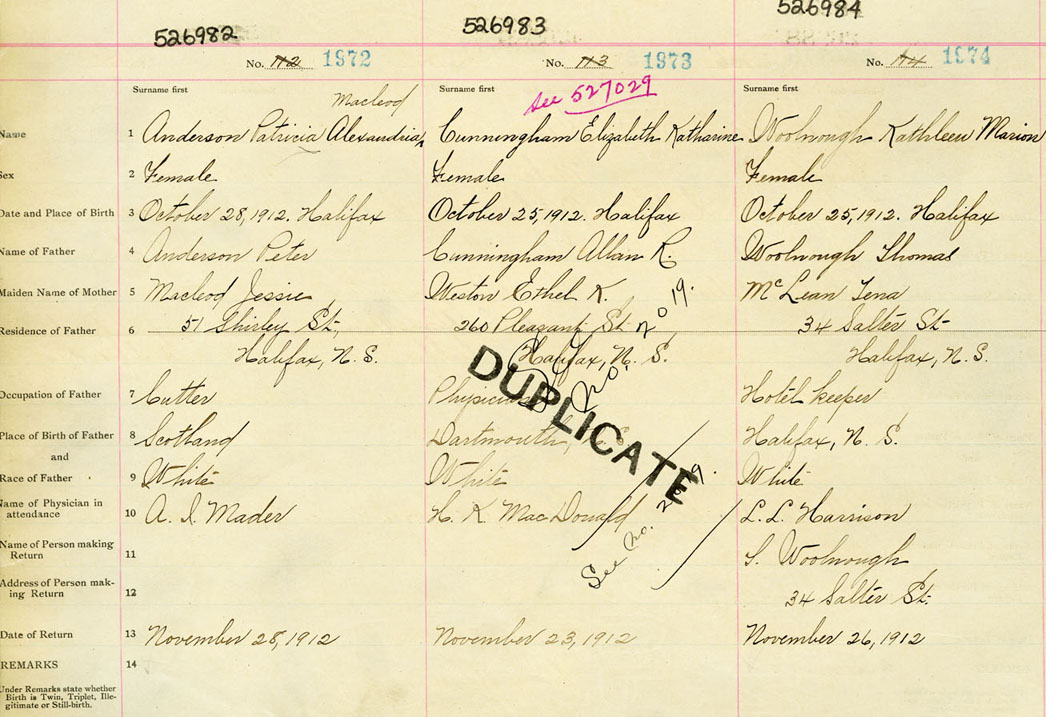 526982 526983 526984
No. 112 1972 No. 113 1973 No. 114 1974
Surname first Surname first Surname first
Macleod See 527029
Name 1 Anderson Patricia Alexandria Cunningham Elizabeth Katharine Woolnough Kathleen Marion
Sex 2 Female Female Female
Date and Place of Birth 3 October 28, 1912. Halifax October 25, 1912. Halifax October 25, 1912. Halifax
Name of Father 4 Anderson Peter Cunningham Allan R. Woolnough Thomas
Maiden Name of Mother 5 Macleod Jessie Weston Ethel K. McLean Tena
Residence of Father 6 51 Shirley St., 260 Pleasant St. 34 Salter St.
Halifax, N. S. Halifax, N. S. Halifax, N. S.
DUPLICATE
no. 2019.
Occupation of Father 7 Cutter Physician Hotel keeper
Place of Birth of Father 8 Scotland Dartmouth, N.S. Halifax, N. S.
and
Race of Father 9 White White White
Name of Physician in
attendance 10 A. I. Mader H. K. MacDonald L. L. Harrison
See no. 2019.
Name of Person making
Return 11 S. Woolnough
Address of Person mak-
ing Return 12 34 Salter St.
Date of Return 13 November 28, 1912 November 23, 1912 November 26, 1912
REMARKS 14
Under Remarks state whether
Birth is Twin, Triplet, Ille-
gitimate or Still-birth.